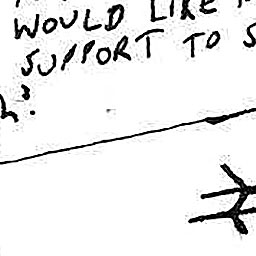 WOULD LIKE
SUPPORT TO S